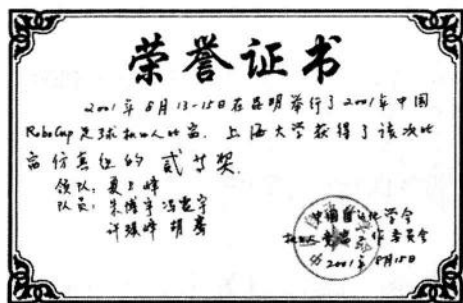 荣誉证书
2001年8月13-15日在昆明举行了2001年中国
RoboCup足球机器人比赛，上海大学获得了该次比
赛仿真组的 贰等奖.
领队：夏上峰
队员：朱博宇
许臻峰 胡
中国自动化学会
机器人竞赛工作委员会
2001年8月15日